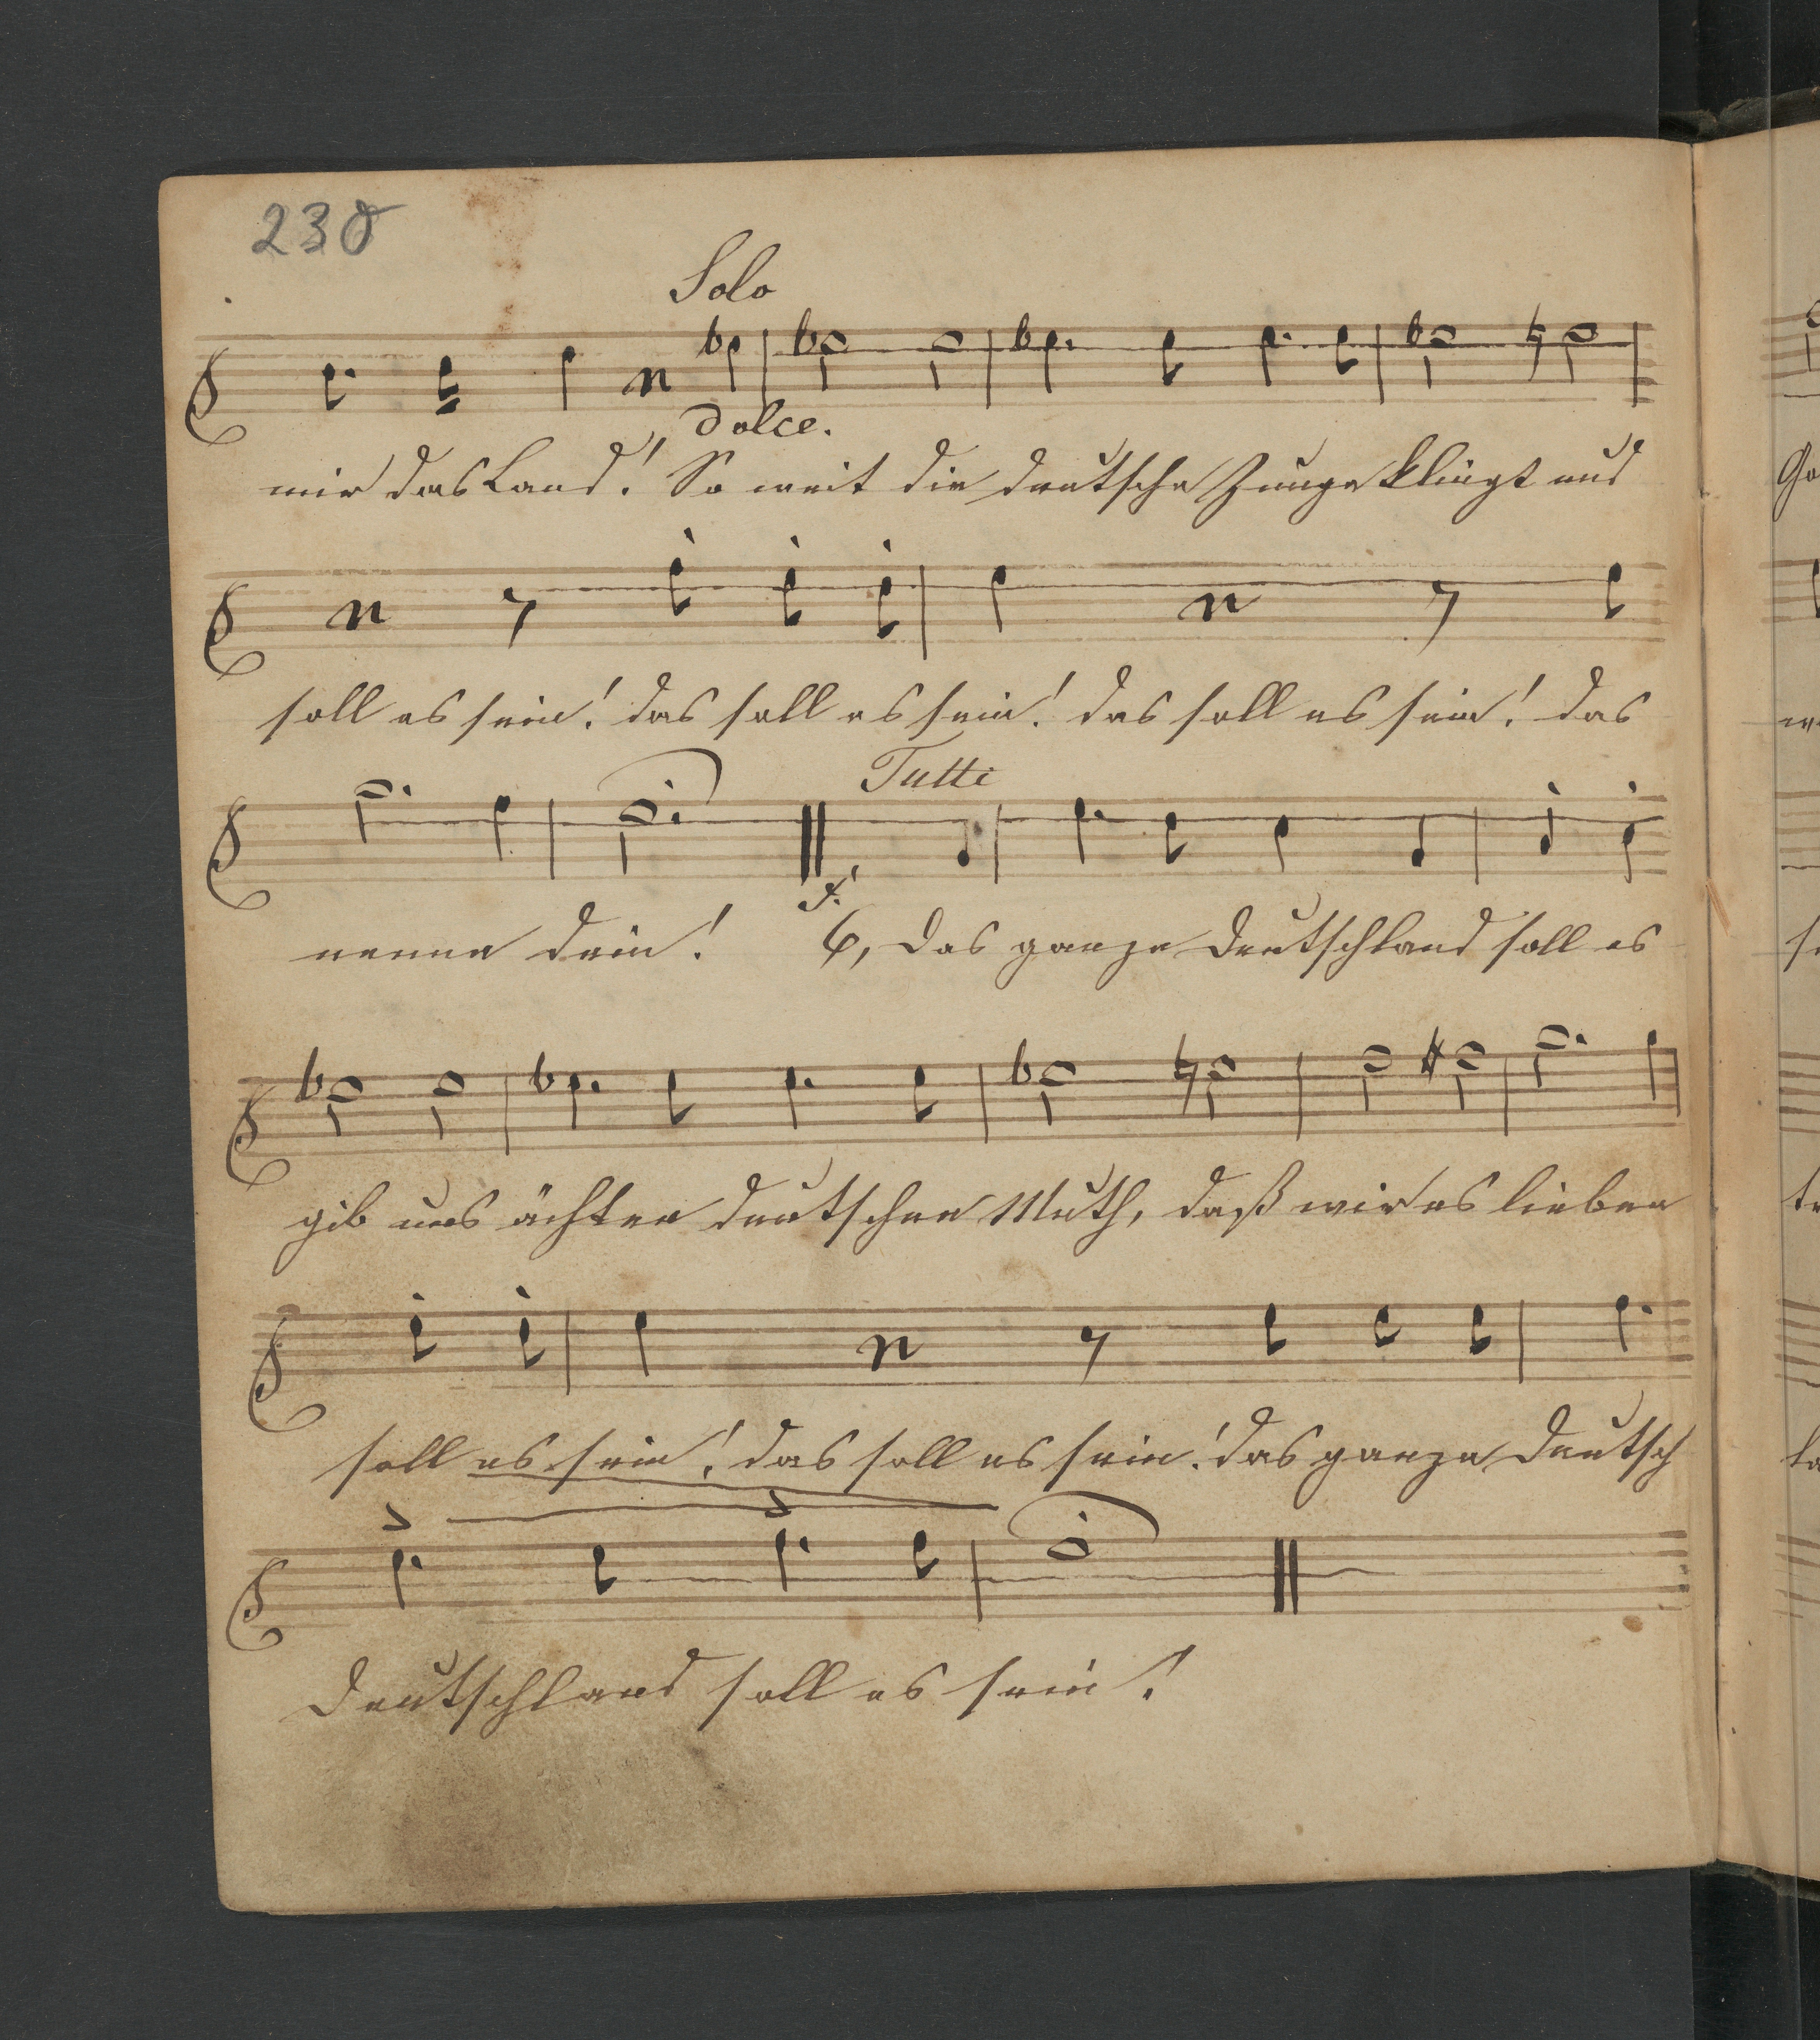 230
Solo
dolce.
mir das Land! So weit die deutsche Zunge klingt und
soll es sein! das soll es sein! das soll es sein! das
Tutti
nenne dein! 6, das ganze Deutschland soll es
gib uns ächten deutschen Muth, daß wir es lieben
soll es sein! das soll es sein! das ganze Deutsch
Deutschland soll es sein!
Go